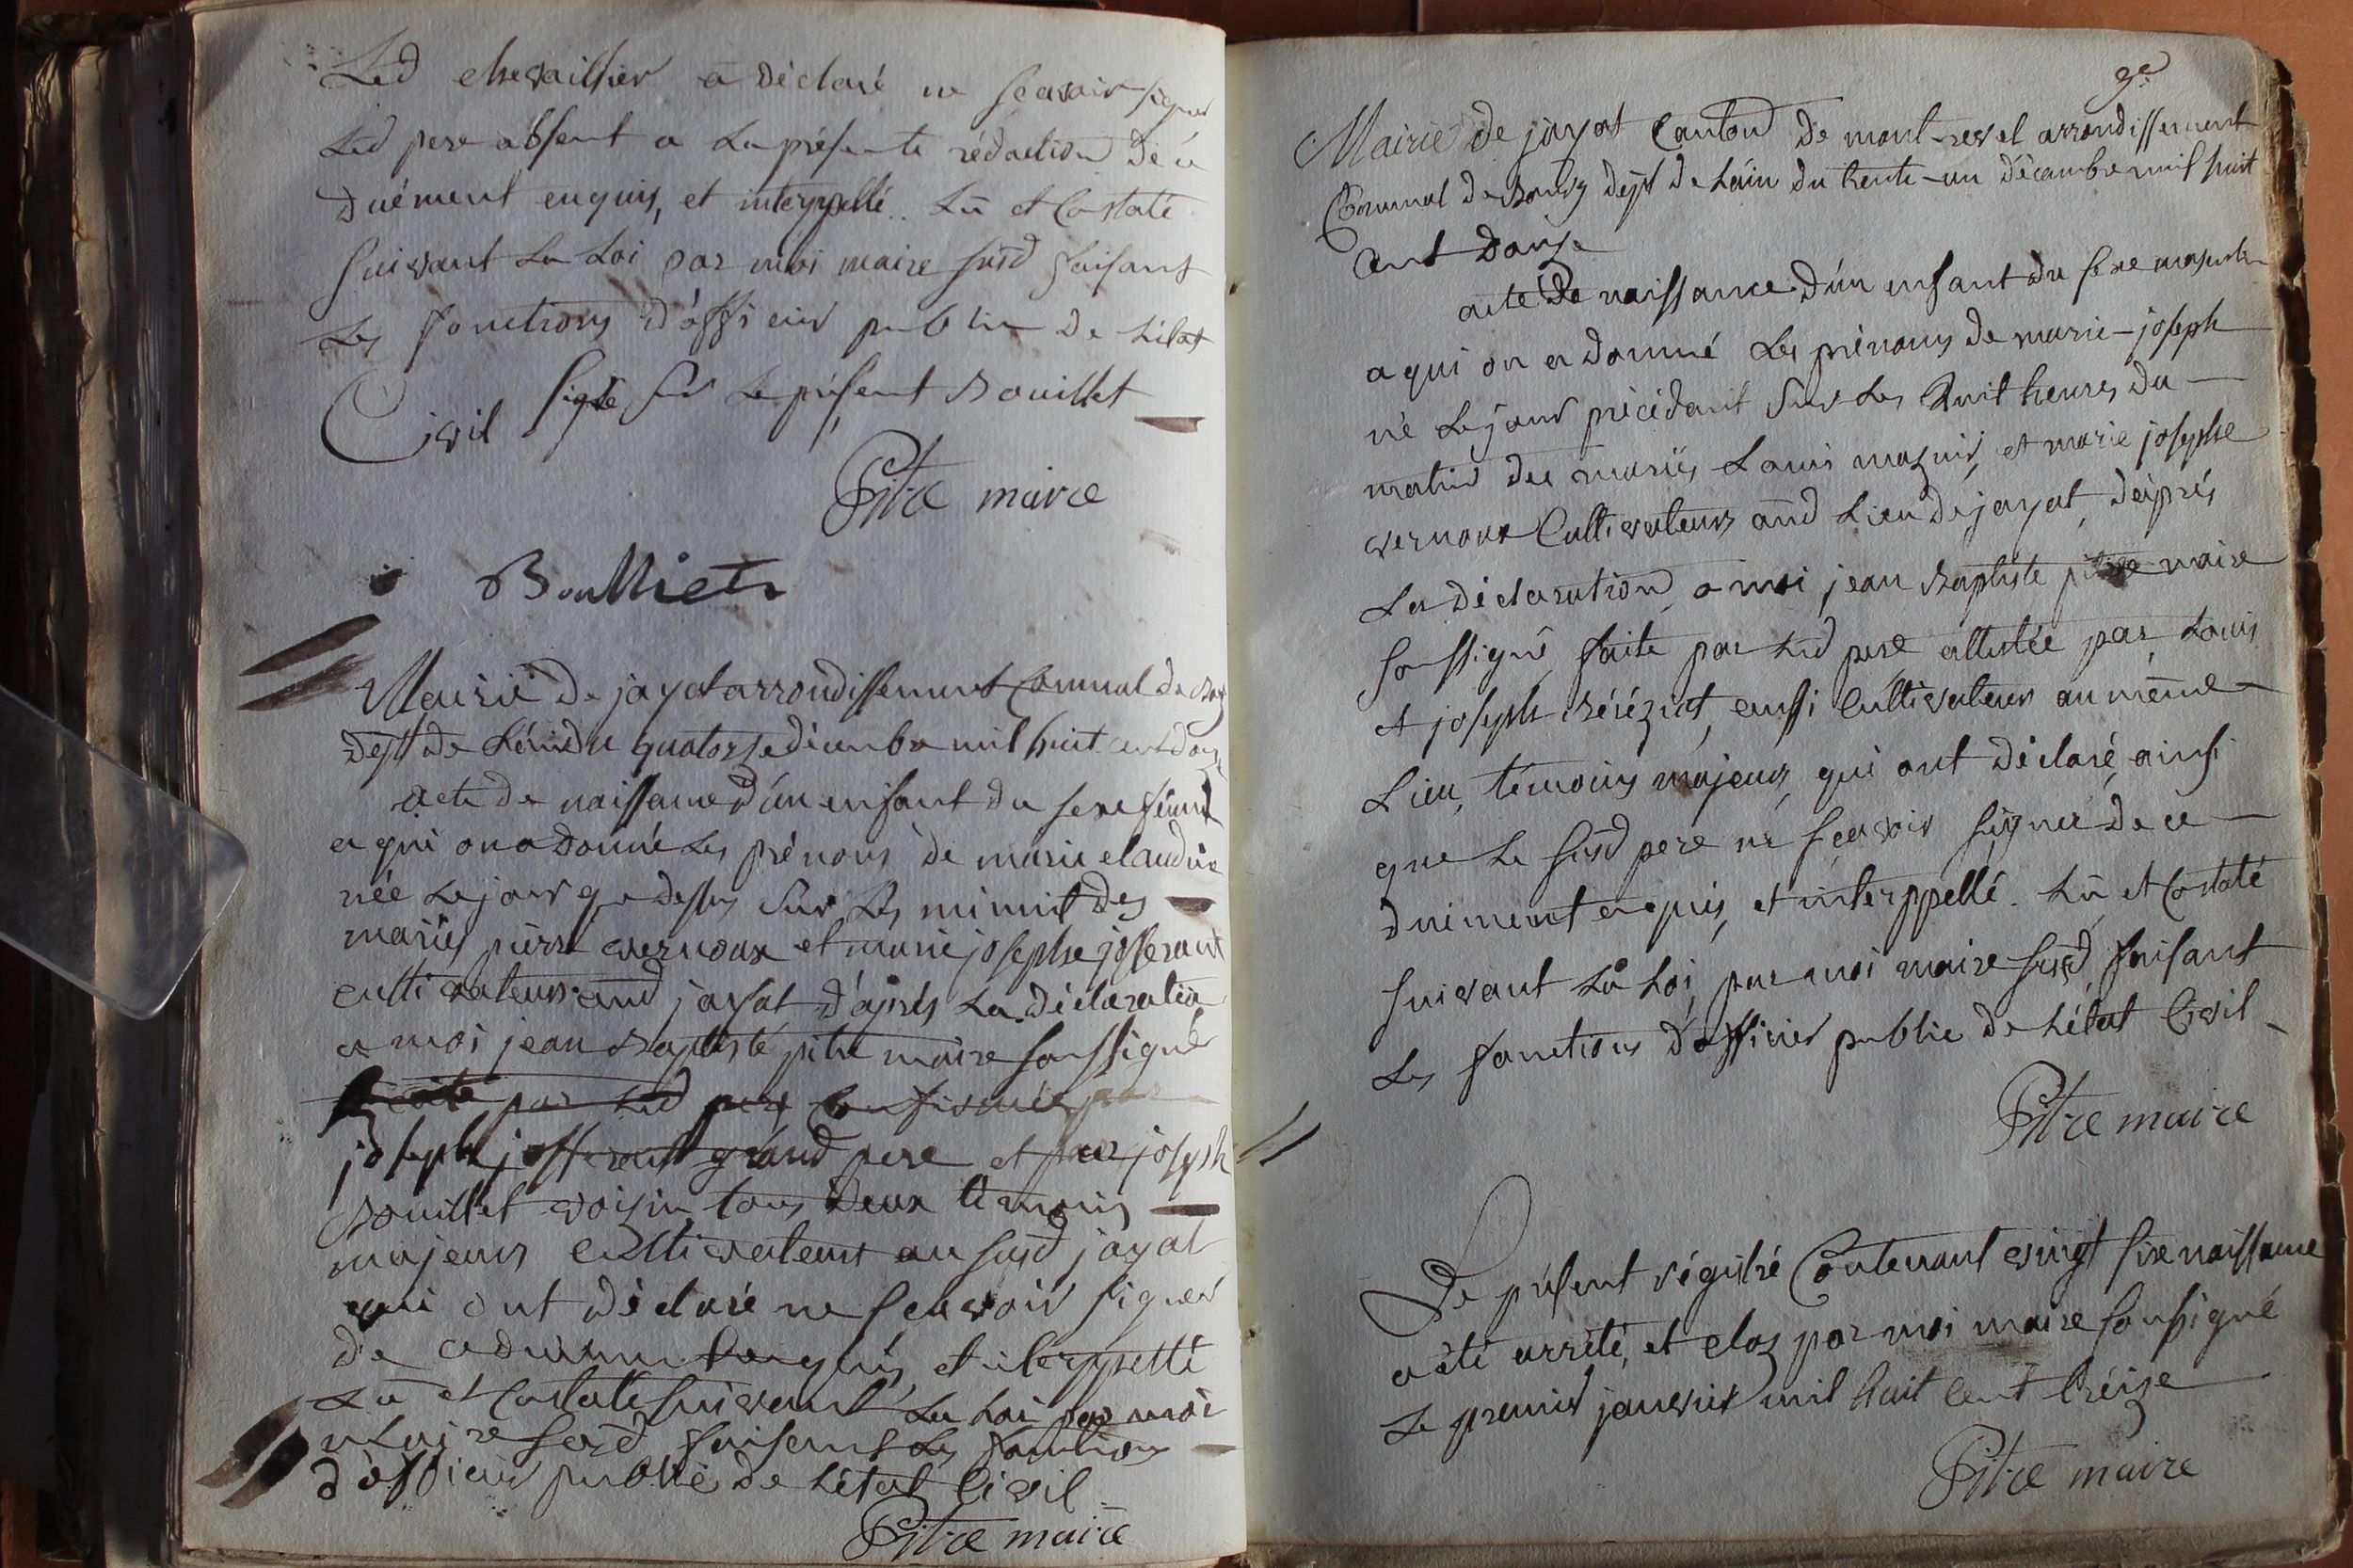 Led chevaillier a déclaré ne scavoir signer
Led pere absent a la présente rédaction de ce
duément enquis, et interppellé. Lû et Costaté
suivant La Loi par moi maire susd faisant
Les fonctions d'officier public de L'état
Civil signé sur Le présent Bouillet
Pitre maire
Boulliet
Mairie de jayat arrondissement Comunal de Bourg
dept de L'ain du quatorse décembre mil huit cent douze
acte de naissance d'un enfant du sexe féminin
a qui on a donné Les prénoms de marie claudine
née Le jour que dessus sur Les minuit des
mariés pierre vernoux et marie josephe josserant
cultivateurs aud jayat d'après La déclaration
a moi jean Baptiste pitre maire soussigné
faite par Led pere confirmée par
joseph josserant grand pere et par joseph
Bouillet voisin, tous deux témoins
majeurs cultivateurs au susd jayat
qui ont déclaré ne scavoir signer
de ce duement enquis, et interppellé
Lû et Costaté suivant La Loi par moi
Maire susd faisant Les fonctions
d'officier public de L'état Civil
Pitre maire
9e
Mairie de jayat Canton de mont-revel arrondissement
Comunal de Bourg dept de L'ain du trente-un décembre mil huit
Cent douze
acte de naissance d'un enfant du sexe masculin
a qui on a donné Les prénoms de marie-joseph
né Le jour précédant sur Les huit heures du
matin des mariés Louis mazuir, et marie josephe
vernoux Cultivateurs aud Lieu de jayat, d'après
La déclaration a moi jean Baptiste pitre maire
soussigné faite par Led pere attestée par Louis
et joseph Béréziat, aussi Cultivateurs au même
Lieu, témoins majeurs, qui ont déclaré, ainsi
que Le susd pere ne scavoir signer de ce
duiment enquis, et interppellé. Lû et Costaté
suivant La Loi, par moi maire susd, faisant
Les fonctions d'officier public de L'état Civil
Pitre maire
Le présent régistré Contenant vingt six naissance
a été arrêté, et clos par moi maire soussigné
Le premier janvier mil huit cent tréize
Pitre maire